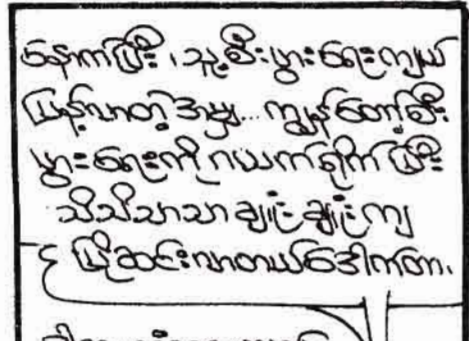 နောက်ပြီး၊ သူ့စီးပွားရေးကျယ်
ပြန့်လာတဲ့အမျှ... ကျွန်တော့်စီး
ပွားရေးကို ဂယက်ရိုက်ပြီး
သိသိသာသာ ချုံးချုံးကျ
ပြိုဆင်းလာတယ်ဒေါက်တာ၊